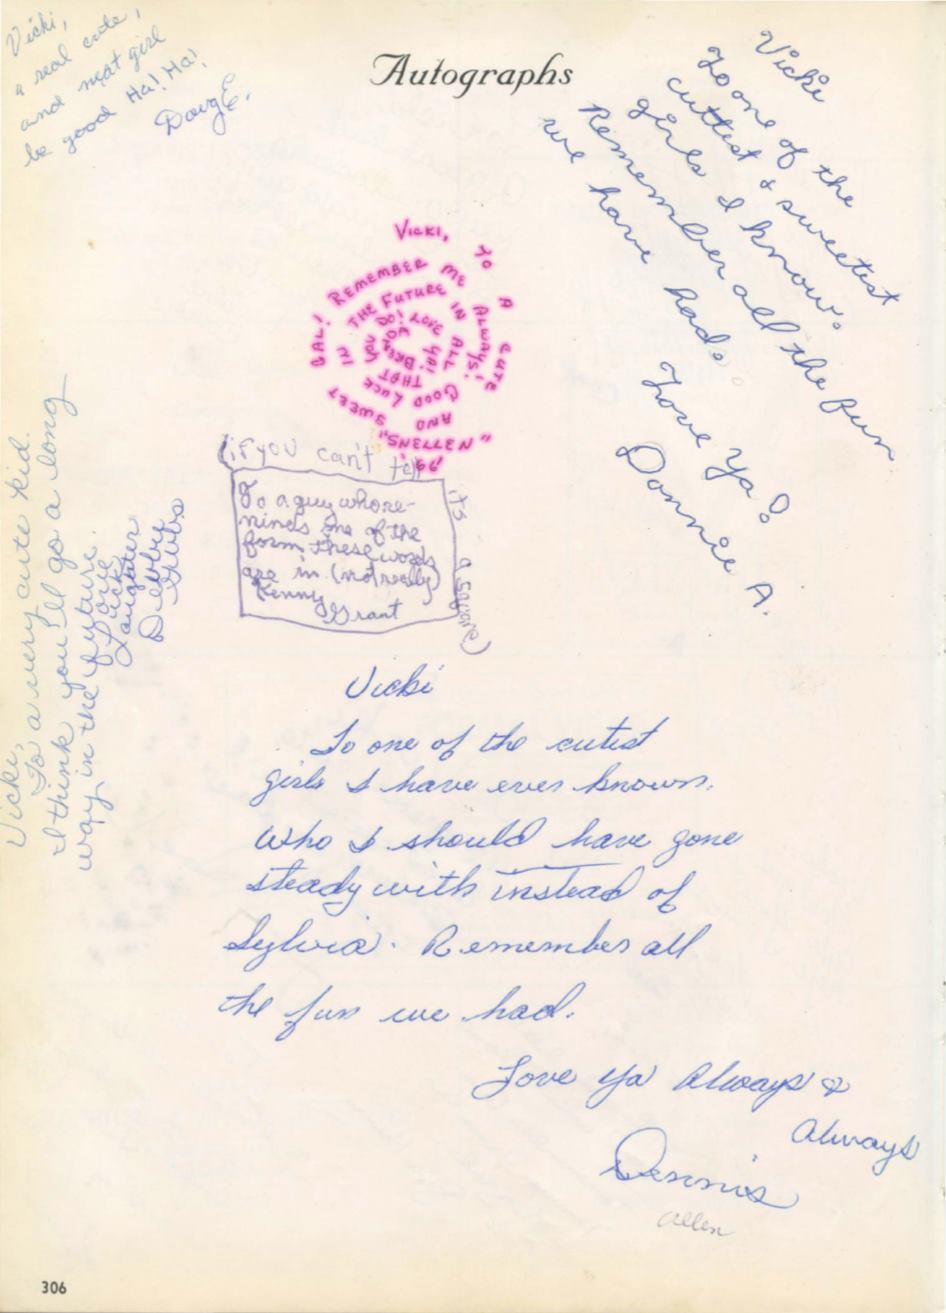 Vicki,
a real cute,
and neat girl
be good Ha! Ha!
Doug E.
Autographs
Vicki
To one of the
cuttest & sweetest
girls I know.
Remember all the fun
we have had.
Love Ya!
Donnie A.
VICKI, TO A CUTE AND SWEET GAL! REMEMBER ME ALWAYS! GOOD LUCK IN THE FUTURE IN ALL THAT YOU DO! LOVE YA!
"NETTENS"
(if you can't tell its a square)
To a guy who re-
minds me of the
form these words
are in (not really)
Kenny
Grant
Vicki,
To a very cute kid.
I think you'll go a long
way in the future.
Love
Luck
Laughter
Debby
Gibbs
Vicki
To one of the cutist
girls I have ever known.
Who I should have gone
steady with instead of
Sylvia. Remember all
the fun we had.
Love Ya Always &
Always
Dennis
Allen
306